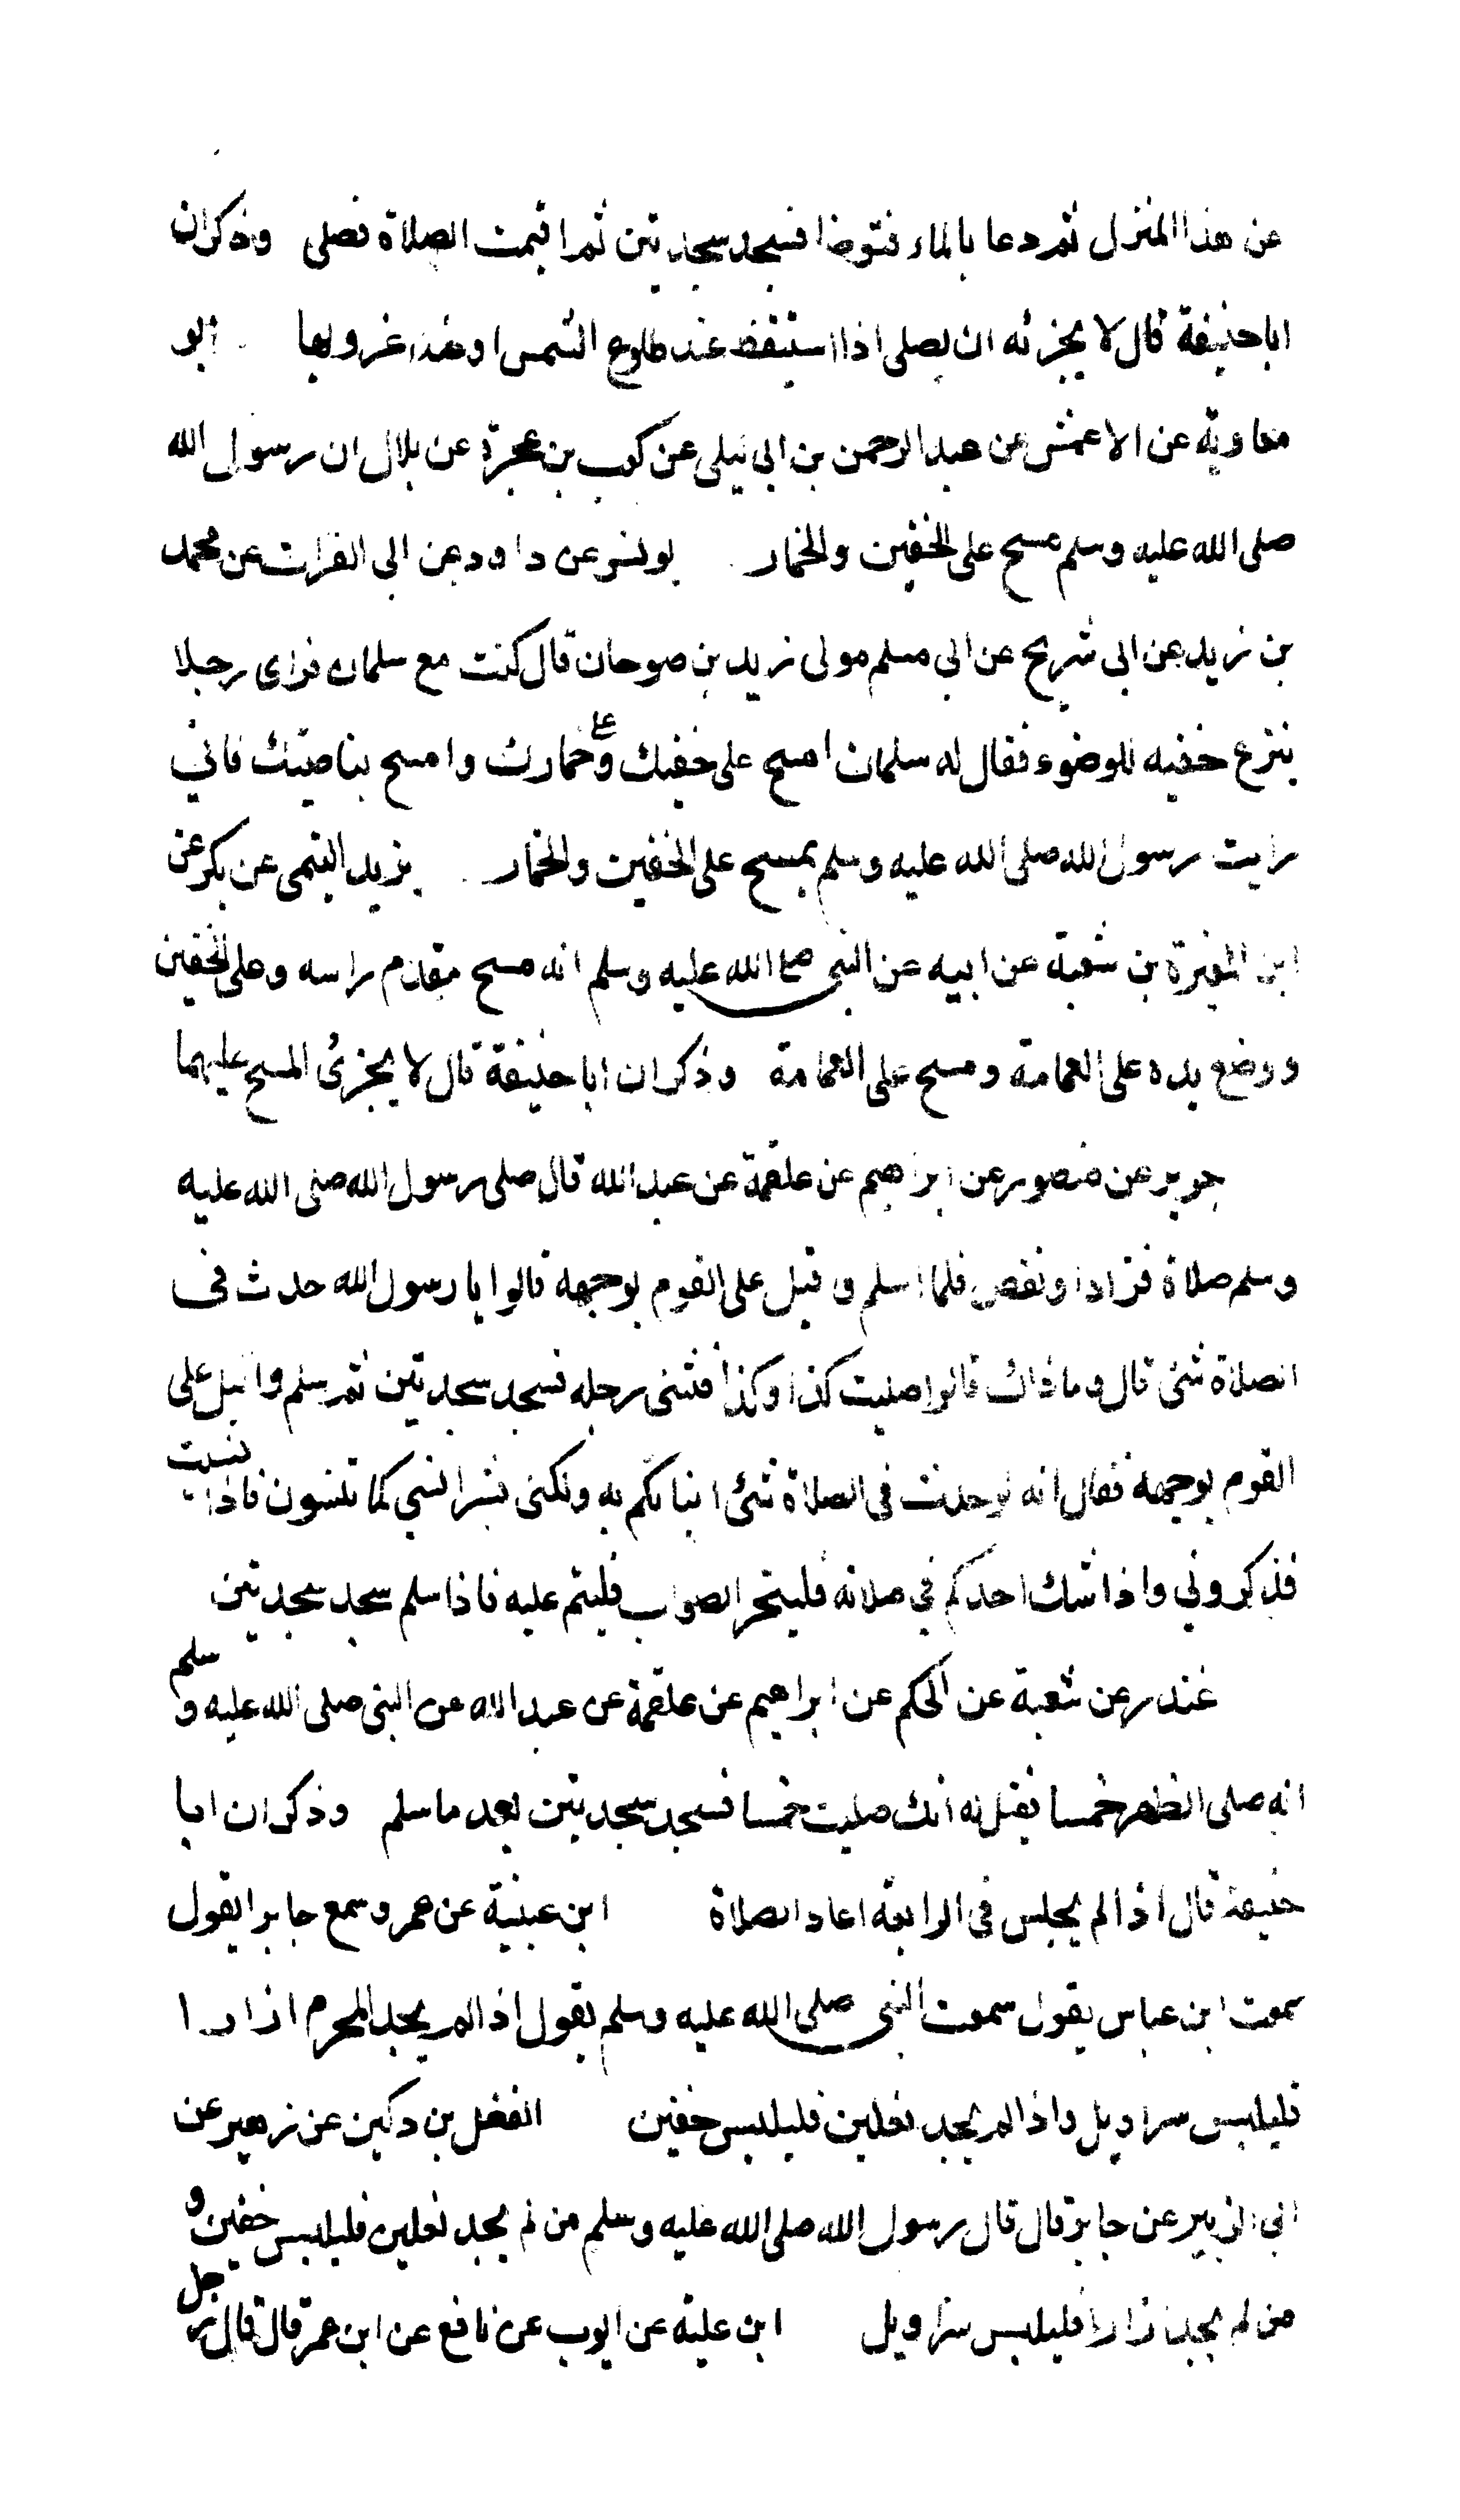 عن هذا المنزل ثم دعا بالماء فتوضا فسجد سجدتين ثم اقيمت الصلاة فصلى وذكر ان
ابا حنيفة قال لا يجزئه ان يصلى اذا استيقظ عند طلوع الشمس او عند غروبها ابو
معاوية عن الاعمش عن عبد الرحمن بن ابى ليلى عن كعب بن عجرة عن بلال ان رسول الله
صلى الله عليه وسلم مسح على الخفين والخمار يونس عن داود عن ابى الفرات عن محمد
بن زيد عن ابى شريح عن ابي مسلم مولى زيد بن صوحان قال كنت مع سلمان فراى رجلا
ينزع خفيه للوضوء فقال له سلمان امسح على خفيك وعلى خمارك وامسح بناصيتك فاني
رايت رسول الله صلى الله عليه وسلم يمسح على الخفين والخمار يزيد التيمى عن بكر عن
ابن المغيرة بن شعبة عن ابيه عن النبى صلى الله عليه وسلم انه مسح مقدم راسه وعلى الخفين
ووضع يده على العمامة ومسح على العمامة وذكر ان ابا حنيفة قال لا يجزئ المسح عليهما
جرير عن منصور عن ابراهيم عن علقمة عن عبد الله قال صلى رسول الله صلى الله عليه
وسلم صلاة فزاد او نقص فلما سلم و قبل على القوم بوجهه قالوا يا رسول الله حدث فى
الصلاة شئ قال وما ذاك قالوا صليت كذا وكذا فثنى رجله فسجد سجدتين ثم سلم واقبل على
القوم بوجهه فقال انه لو حدث فى الصلاة شئ انباتكم به ولكنى بشر انسي كما تنسون فاذا نسيت
فذكروني واذا شك احدكم في صلاته فليتحر الصواب فليتم عليه فاذا سلم سجد سجدتين
غندر عن شعبة عن الحكم عن ابراهيم عن علقمة عن عبد الله عن النبى صلى الله عليه وسلم
انه صلى الظهر خمسا فقيل له انك صليت خمسا فسجد سجدتين بعد ما سلم وذكر ان ابا
حنيفة قال اذا لم يجلس فى الرابعة اعاد الصلاة ابن عيينة عن عمرو سمع جابرا يقول
سمعت ابن عباس يقول سمعت النبى صلى الله عليه وسلم يقول اذا لم يجد المحرم ازارا
فليلبس سراويل واذا لم يجد نعلين فليلبس خفين الفضل بن دكين عن زهير عن
ابى الزبير عن جابر قال قال رسول الله صلى الله عليه وسلم من لم يجد نعلين فليلبس خفين و
من لم يجد ازارا فليلبس سراويل ابن علية عن ايوب عن نافع عن ابن عمر قال قال رجل